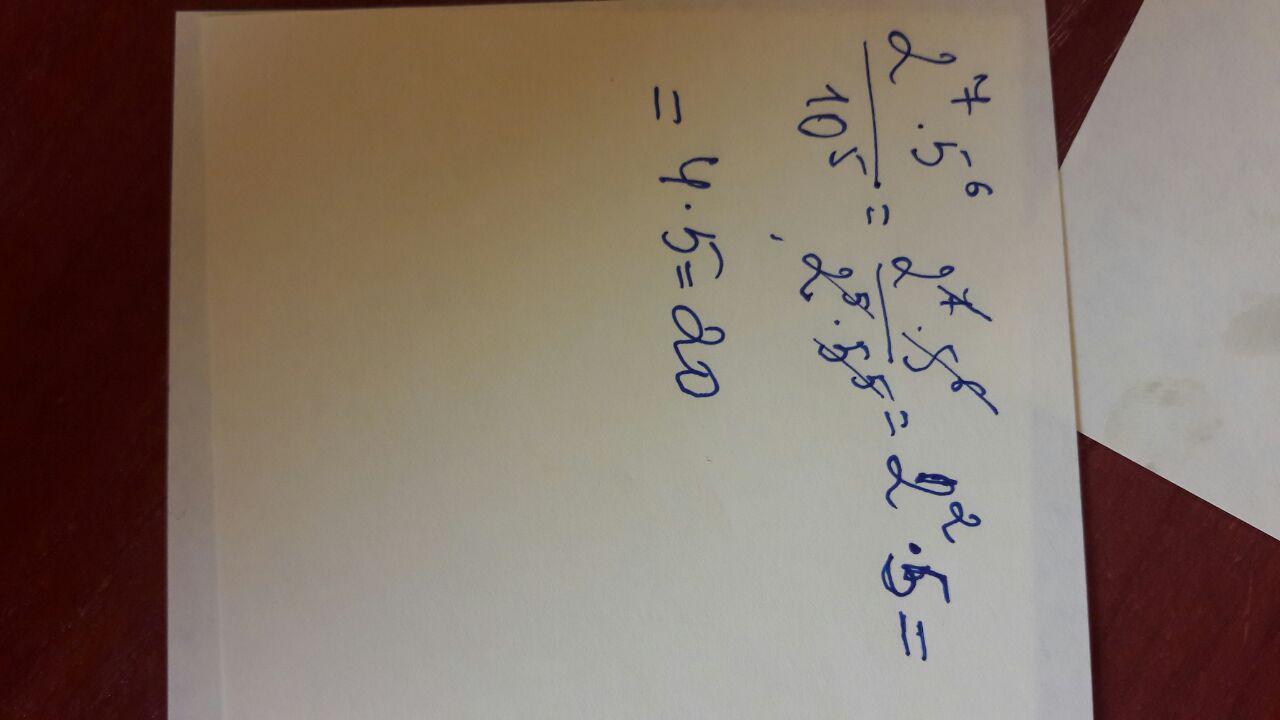 2⁷ · 5⁶ / 10⁵ = 2⁷ · 5⁶ / 2⁵ · 5⁵ = 2² · 5 =
= 4 · 5 = 20